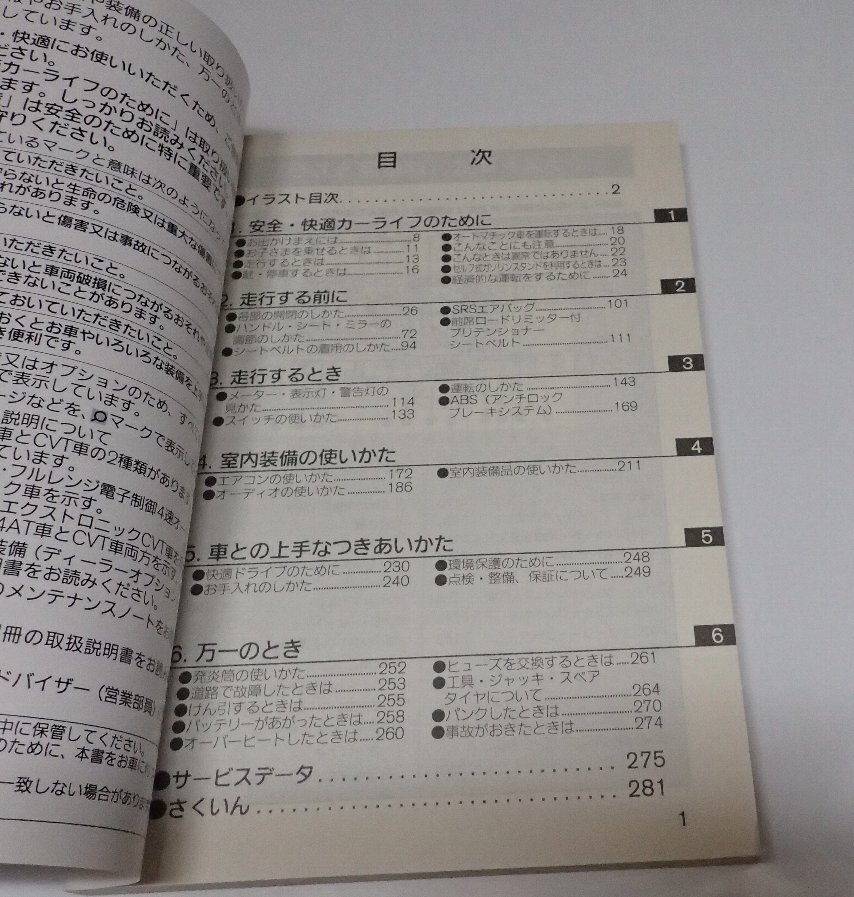 や装備の正しい取り
やお手入れのしかた、万一の
しています。
・快適にお使いいただくため、
ださい。
カーライフのために」は取り
ます。しっかりお読みください。
」は安全のために特に重要です
守りください。
ているマークと意味は次のように
ていただきたいこと。
らないと生命の危険又は重大な傷害
れがあります。
らないと傷害又は事故につながるおそ
いただきたいこと。
ないと車両破損につながるおそれ
できないことがあります。
ておいていただきたいこと。
おくとお車やいろいろな装備を
き便利です。
又はオプションのため、すべ
で表示しています。
ージなどを、マークで表示し
説明について
車とCVT車の2種類がありま
ています。
・フルレンジ電子制御4速オー
ク車を示す。
エクストロニックCVT車を
4AT車とCVT車両方を示す
装備(ディーラーオプション
明書をお読みください。
のメンテナンスノートをお
冊の取扱説明書をお読み
ドバイザー(営業部員)
中に保管してください。
のために、本書をお車に
一致しない場合があります
目 次
●イラスト目次 2
安全・快適カーライフのために 1
●お出かけまえには 8
●お子さまを乗せるときは 11
●走行するときは 13
●駐・停車するときは 16
●オートマチック車を運転するときは 18
●こんなことにも注意 20
●こんなときは異常ではありません 22
●セルフ式ガソリンスタンドを利用するときは 23
●経済的な運転をするために 24
2. 走行する前に 2
●各部の開閉のしかた 26
●ハンドル・シート・ミラーの
調節のしかた 72
●シートベルトの着用のしかた 94
●SRSエアバッグ 101
●前席ロードリミッター付
プリテンショナー
シートベルト 111
3. 走行するとき 3
●メーター・表示灯・警告灯の
見かた 114
●スイッチの使いかた 133
●運転のしかた 143
●ABS(アンチロック
ブレーキシステム) 169
4. 室内装備の使いかた 4
●エアコンの使いかた 172
●オーディオの使いかた 186
●室内装備品の使いかた 211
5. 車との上手なつきあいかた 5
●快適ドライブのために 230
●お手入れのしかた 240
●環境保護のために 248
●点検・整備、保証について 249
6. 万一のとき 6
●発炎筒の使いかた 252
●道路で故障したときは 253
●けん引するときは 255
●バッテリーがあがったときは 258
●オーバーヒートしたときは 260
●ヒューズを交換するときは 261
●工具・ジャッキ・スペア
タイヤについて 264
●パンクしたときは 270
●事故がおきたときは 274
●サービスデータ 275
●さくいん 281
1